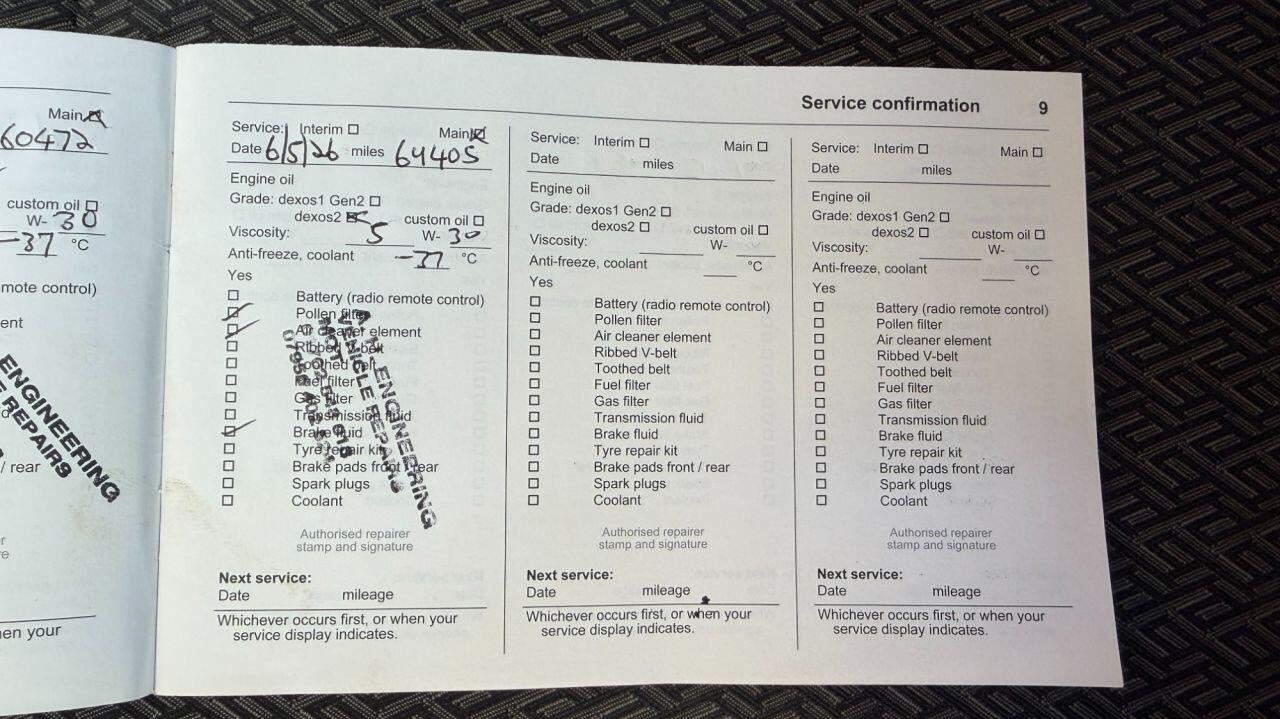 Main
60472
custom oil
W- 30
-37 °C
mote control)
ent
ENGINEERING
E REPAIRS
/ rear
en your
Service confirmation 9
Service: Interim Main
Date 6/5/26 miles 64405
Engine oil
Grade: dexos1 Gen2
dexos2 custom oil
Viscosity: 5 W- 30
Anti-freeze, coolant -37 °C
Yes
Battery (radio remote control)
Pollen filter
Air cleaner element
Ribbed V-belt
Toothed belt
Fuel filter
Gas filter
Transmission fluid
Brake fluid
Tyre repair kit
Brake pads front / rear
Spark plugs
Coolant
ENGINEERING
VEHICLE REPAIRS
Authorised repairer
stamp and signature
Next service:
Date mileage
Whichever occurs first, or when your
service display indicates.
Service: Interim Main
Date miles
Engine oil
Grade: dexos1 Gen2
dexos2 custom oil
Viscosity: W-
Anti-freeze, coolant °C
Yes
Battery (radio remote control)
Pollen filter
Air cleaner element
Ribbed V-belt
Toothed belt
Fuel filter
Gas filter
Transmission fluid
Brake fluid
Tyre repair kit
Brake pads front / rear
Spark plugs
Coolant
Authorised repairer
stamp and signature
Next service:
Date mileage
Whichever occurs first, or when your
service display indicates.
Service: Interim Main
Date miles
Engine oil
Grade: dexos1 Gen2
dexos2 custom oil
Viscosity: W-
Anti-freeze, coolant °C
Yes
Battery (radio remote control)
Pollen filter
Air cleaner element
Ribbed V-belt
Toothed belt
Fuel filter
Gas filter
Transmission fluid
Brake fluid
Tyre repair kit
Brake pads front / rear
Spark plugs
Coolant
Authorised repairer
stamp and signature
Next service:
Date mileage
Whichever occurs first, or when your
service display indicates.